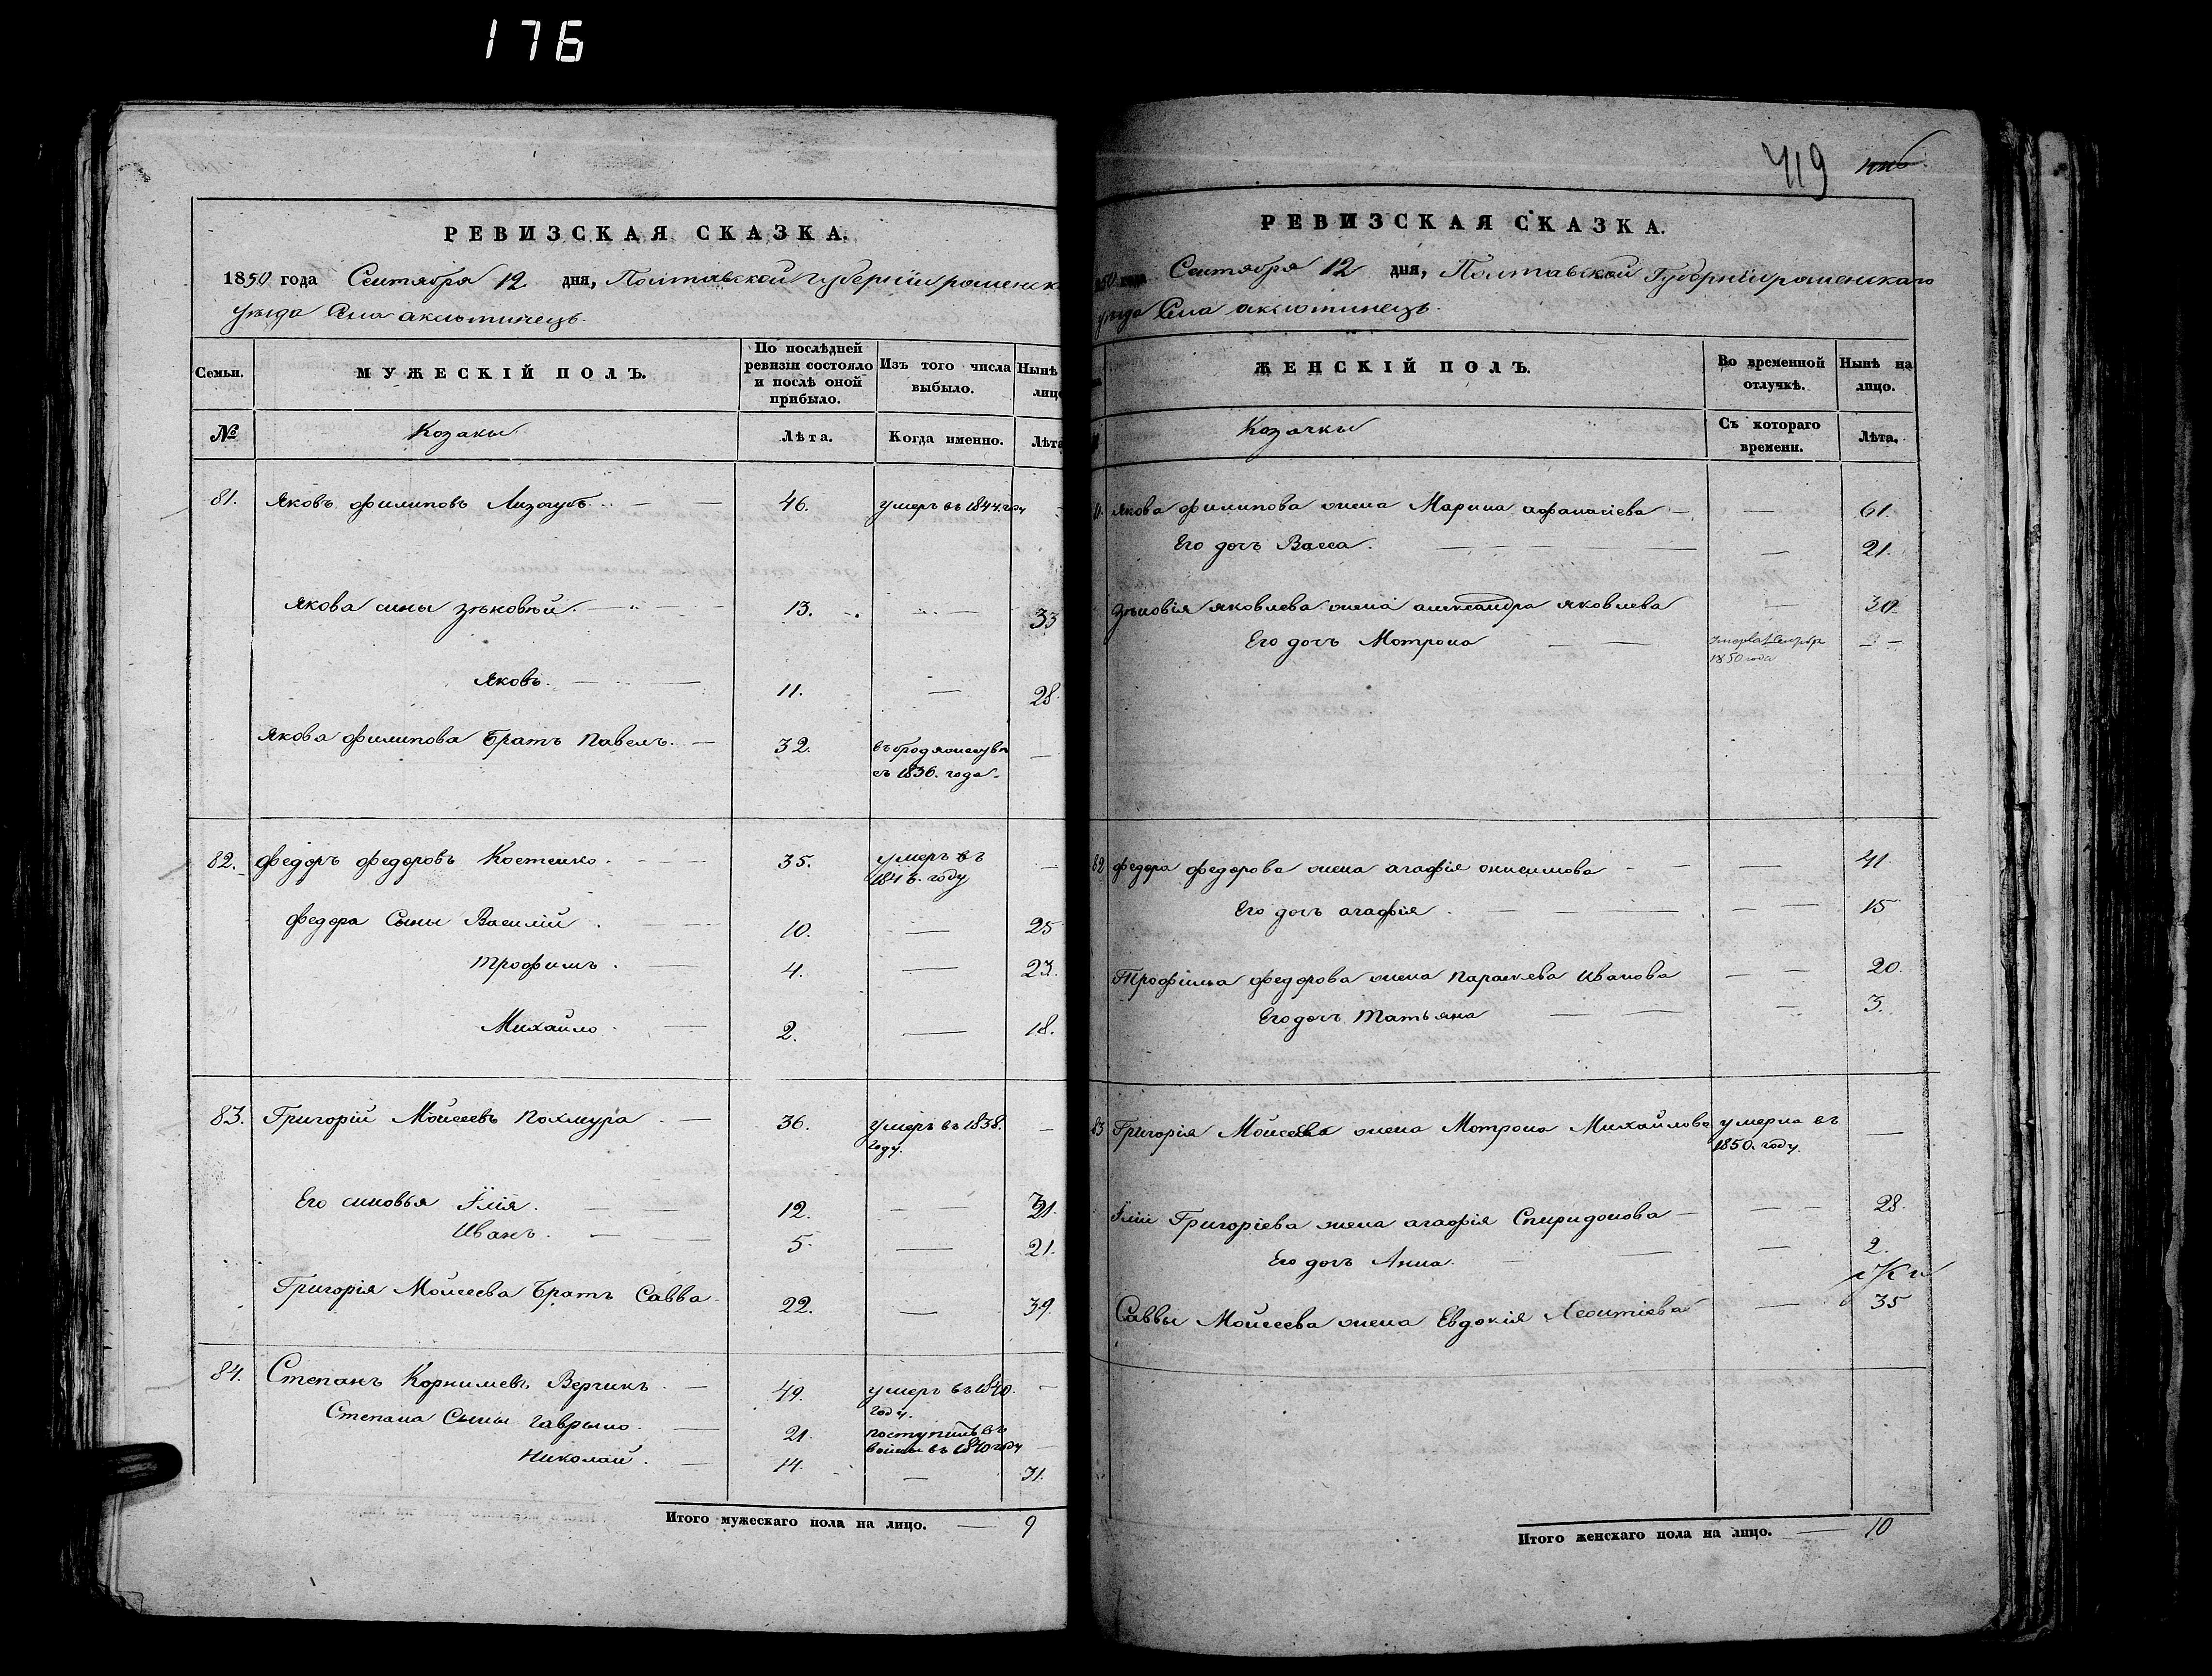 176
РЕВИЗСКАЯ СКАЗКА.
1850 года Сентября 12 дня, Полтавской губерніи роменск
уѣзда Села аксютинецъ.
Семьи. МУЖЕСКІЙ ПОЛЪ. По послѣдней ревизіи состояло и послѣ оной прибыло. Изъ того числа выбыло. Нынѣ лицо
№ Козаки Лѣта. Когда именно. Лѣта
81. Яковъ филиповъ Лизогубъ 46. умеръ въ 1844. году —
Якова сины зѣновѣй. 13. — 33
Яковъ. 11. — 28.
Якова филипова братъ Павелъ. 32. въ бродяжеству
съ 1836. года. —
82. федоръ федоровъ Костенко. 35. умеръ въ
184 году —
федора Сыны Василій 10. — 25
трофимъ. 4. — 23.
Михайло. 2. — 18.
83. Григорій Мойсеевъ похмура 36. умеръ въ 1838.
году. —
Его синовья Ілія. 12. — 21.
Иванъ. 5. — 21.
Григорія Мойсеева братъ Савва 22. — 39.
84. Степанъ Корнилиевъ Верчикъ 49. умеръ въ 1840.
году. —
Степана Сыны гаврыло. 21. поступилъ въ
въ 1840 году —
Николай. 14. — 31.
Итого мужескаго пола на лицо. — 9
419
РЕВИЗСКАЯ СКАЗКА.
850 года Сентября 12 дня, Полтавской Губерніи роменскаго
уѣзда Села аксютинецъ.
ЖЕНСКІЙ ПОЛЪ. Во временной отлучкѣ. Нынѣ на лицо.
Козачки Съ котораго времени. Лѣта.
Якова филипова жена Марина афанасіева — 61.
Его дочъ Васса. — 21.
Зѣновія яковлева жена александра яковлева — 30.
Его дочъ Мотрона
1850 года
82 федора федорова жена агафія онисимова — 41.
Его дочъ агафія. — 15
Трофима федорова жена параскева иванова — 20.
Его дочъ татьяна — 3.
83 Григорія Мойсеева жена Мотрона Михайлова умерла въ
1850. году —
Іліи Григоріева жена агафія Спиридонова — 28.
Его дочъ Анна. — 2.
Саввы Мойсеева жена Евдокія Леонтіева — 35
Итого женскаго пола на лицо. — 10